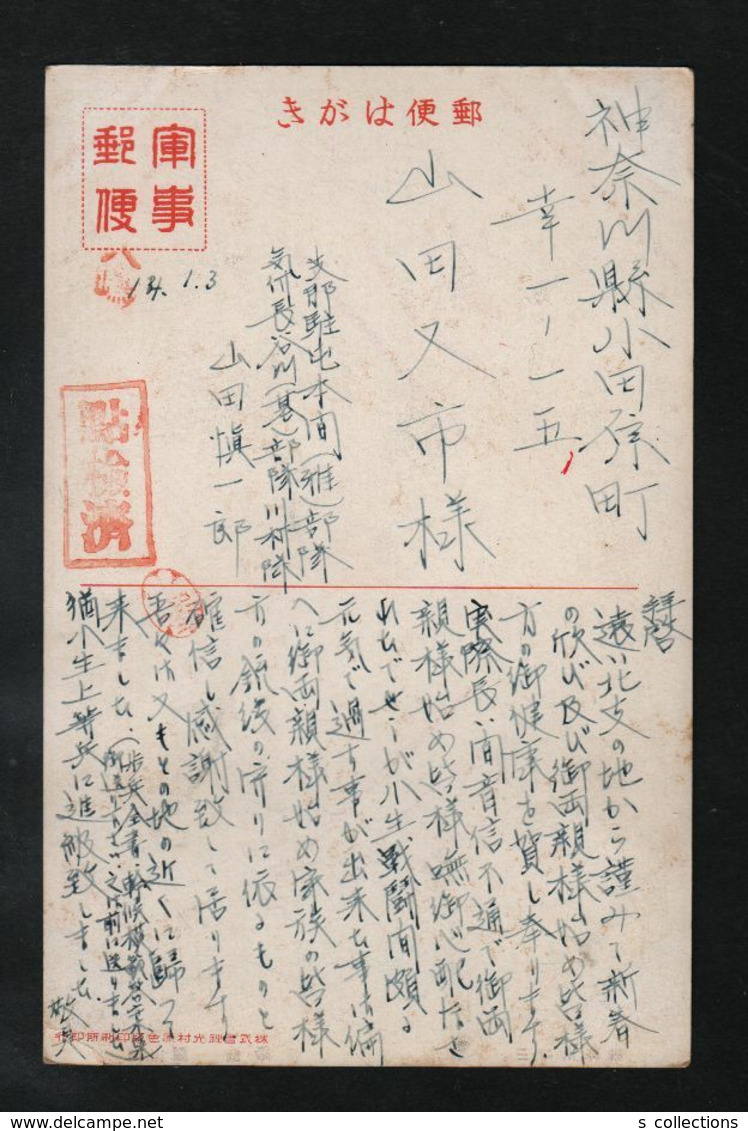 郵便はがき
軍事
郵便
神奈川縣小田原町
幸一ノ一一五
山田又市様
支那駐屯本間(雅)部隊
気付長谷川(基)部隊川村隊
山田愼一郎
14.1.3
點檢濟
拝啓
遠い北支の地から謹みて新春
の欣び及び御両親様始め皆様
方の御健康を賀し奉ります。
実際長い間音信不通で御両
親様始め皆様嘸御心配なさ
れたでせうが小生戦闘間頗る
元気で過す事が出来た事は偏
へに御両親様始め家族の皆様
方の銃後の守りに依るものと
確信し感謝致して居ります
吾々は又もとの地の近くに歸つて
来ました、(歩兵全書、幹候模範答案集
御送り下さい之は前に送りました)
猶小生上等兵に進級致しました 敬具
s collections